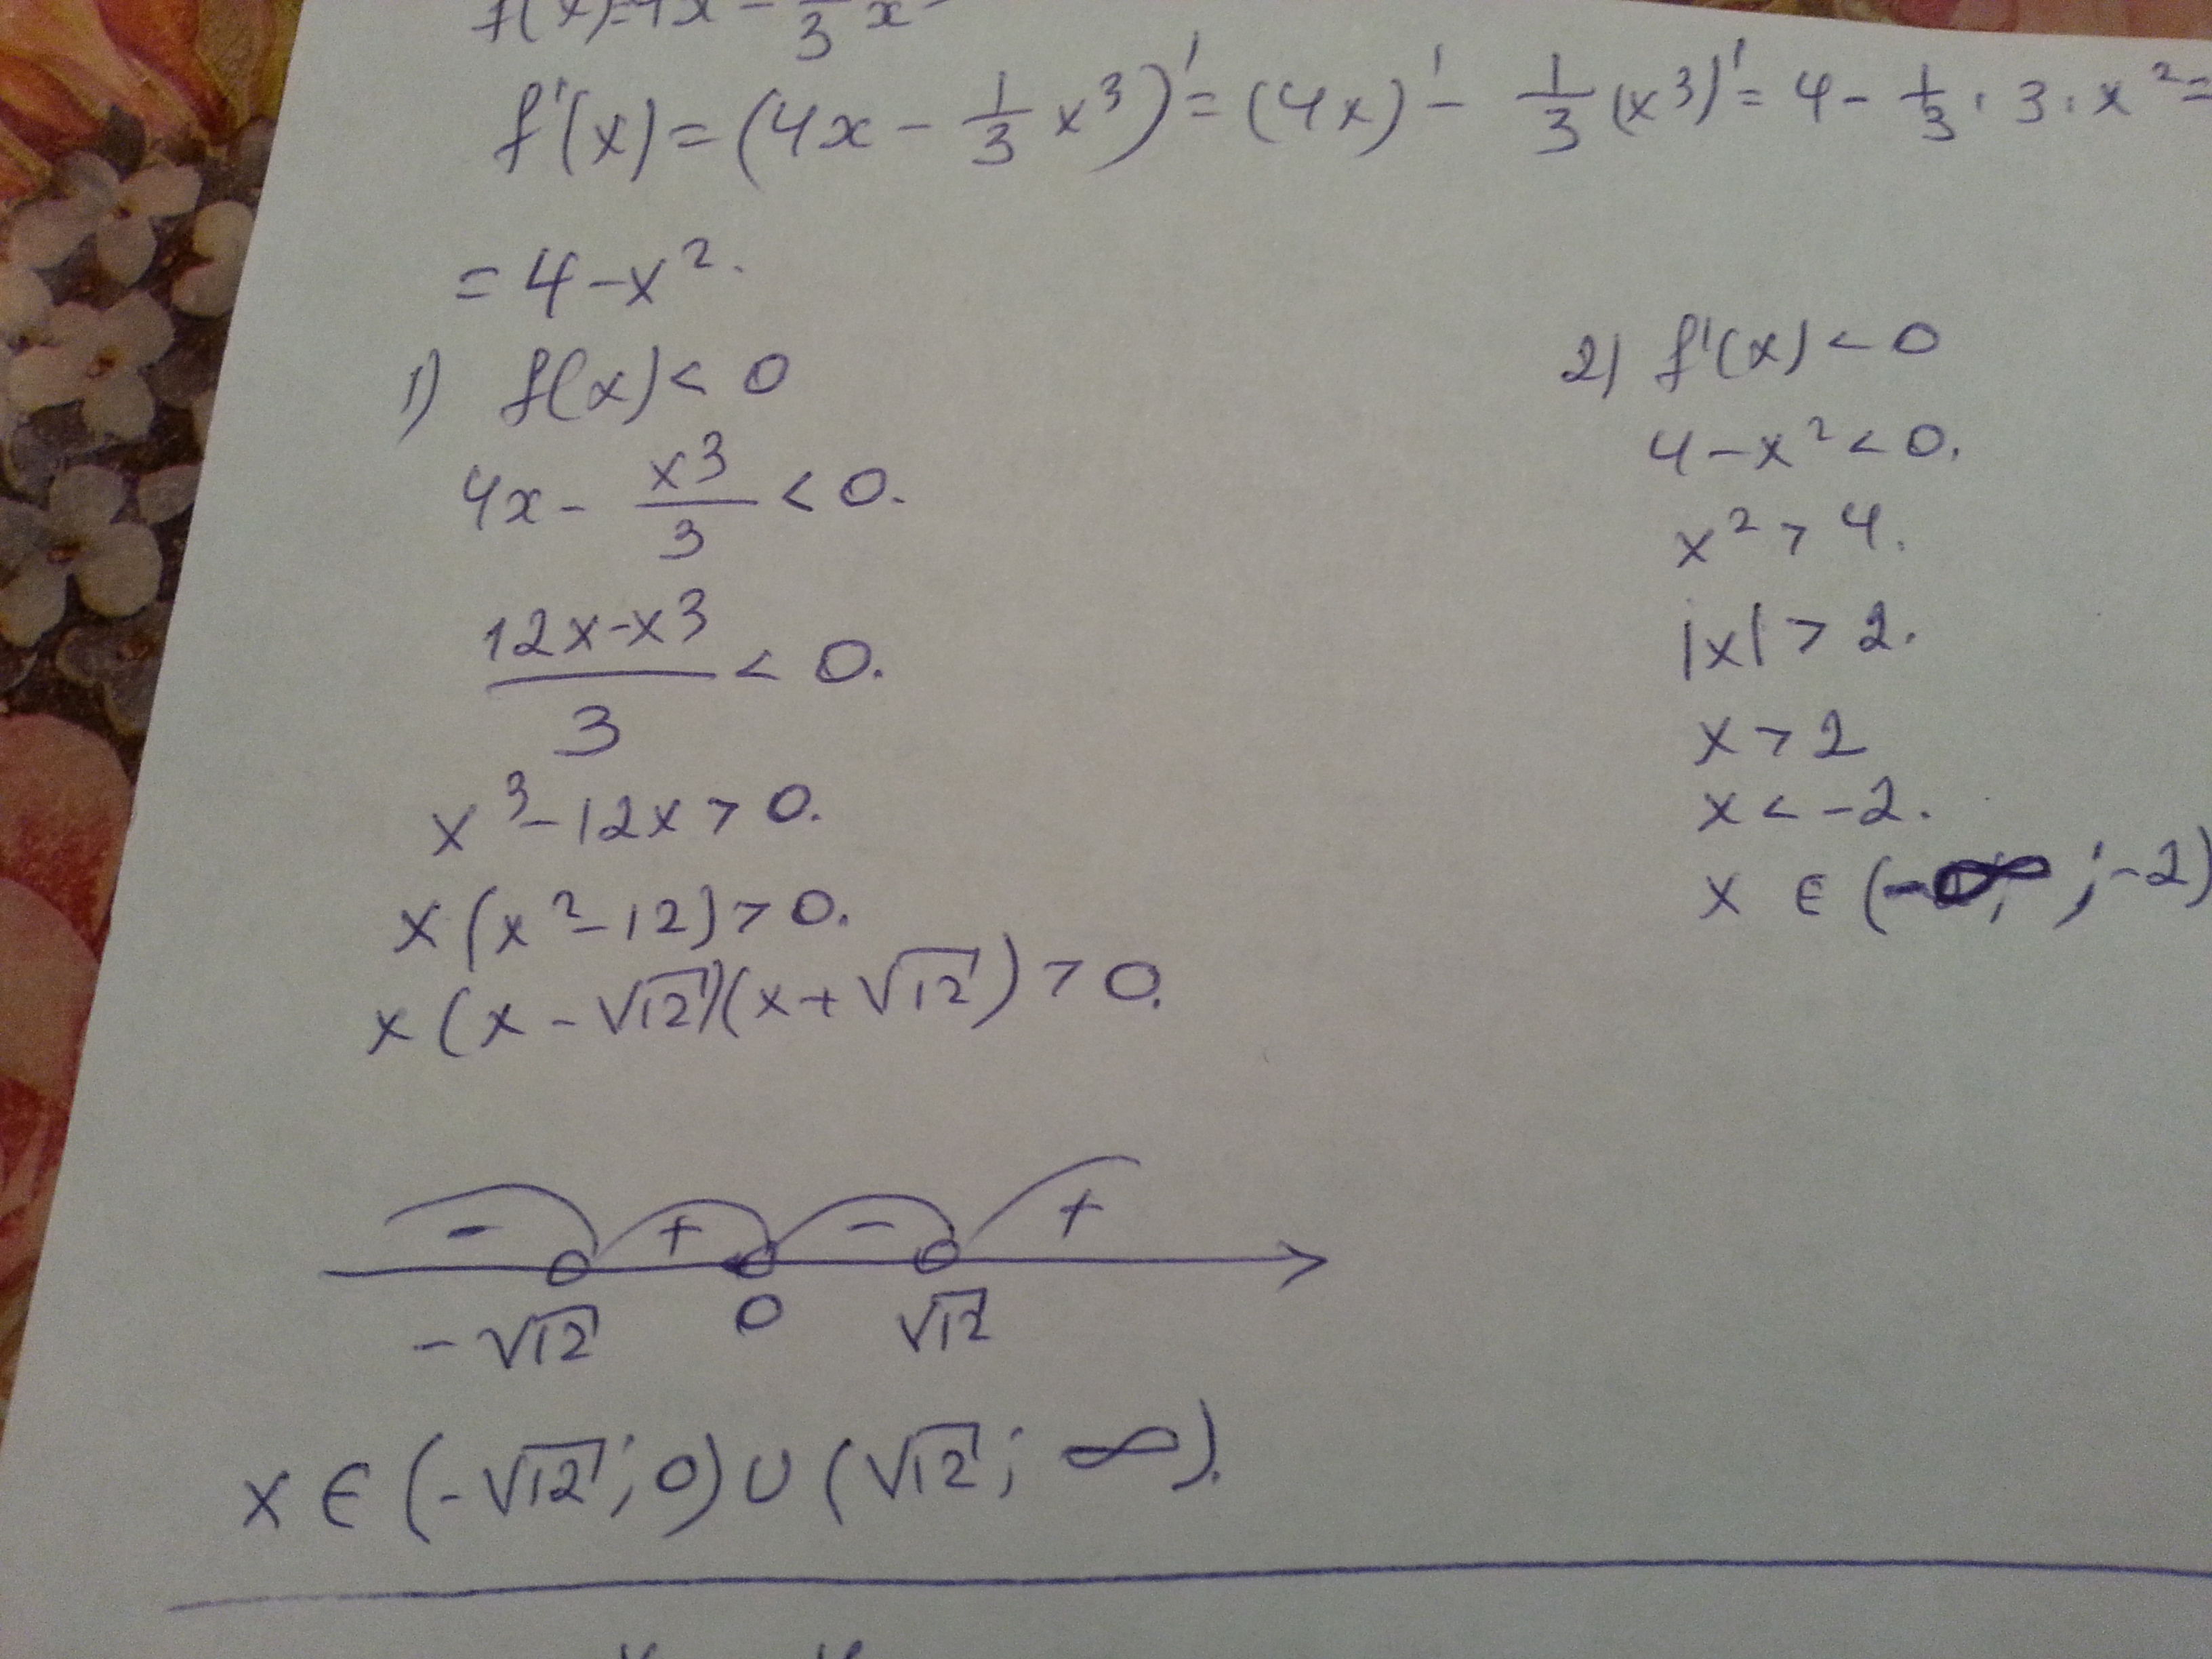 f(x)=4x - 1/3 x³
f'(x) = (4x - 1/3 x³)' = (4x)' - 1/3 (x³)' = 4 - 1/3 · 3 · x² =
= 4 - x².
1) f(x) < 0
4x - x³/3 < 0.
(12x-x³)/3 < 0.
x³ - 12x > 0.
x(x² - 12) > 0.
x(x - √12)(x + √12) > 0.
- + - +
-√12 0 √12
x ∈ (-√12; 0) ∪ (√12; ∞).
2) f'(x) < 0
4 - x² < 0.
x² > 4.
|x| > 2.
x > 2
x < -2.
x ∈ (-∞; -2)